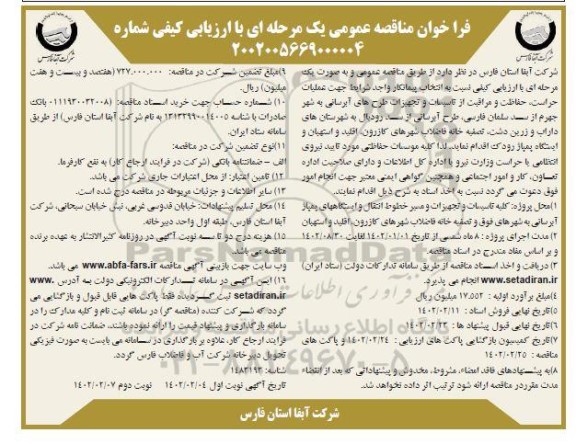 فرا خوان مناقصه عمومی یک مرحله ای با ارزیابی کیفی شماره
۲۰۰۲۰۰۵۶۶۹۰۰۰۰۰۴
شرکت آبفا استان فارس در نظر دارد از طریق مناقصه عمومی و به صورت یک
مرحله ای با ارزیابی کیفی نسبت به انتخاب پیمانکار واجد شرایط جهت عملیات
حراست، حفاظت و مراقبت از تاسیسات و تجهیزات طرح های آبرسانی به شهر
جهرم از سد سلمان فارسی، طرح آبرسانی از سد رودبال به شهرستان های
داراب و زرین دشت، تصفیه خانه فاضلاب شهرهای کازرون، اقلید و استهبان و
ایستگاه پمپاژ رودک اقدام نماید. لذا کلیه موسسات حفاظتی مورد تایید نیروی
انتظامی یا حراست وزارت نیرو یا اداره کل اطلاعات و دارای صلاحیت اداره
تعاون، کار و امور اجتماعی و همچنین گواهی ایمنی معتبر جهت انجام امور
فوق دعوت می گردد نسبت به اخذ اسناد به شرح ذیل اقدام نمایند.
۱) محل پروژه: کلیه تاسیسات و تجهیزات و مسیر خطوط انتقال و ایستگاههای پمپاژ
آبرسانی به شهرهای فوق و تصفیه خانه فاضلاب شهرهای کازرون، اقلید و استهبان
۲) مدت اجرای پروژه: ۸ ماه شمسی از تاریخ ۱۴۰۲/۰۱/۰۱ لغایت ۱۴۰۲/۰۸/۳۰
و بر اساس مفاد مندرج در اسناد مناقصه.
۳) دریافت و اخذ اسناد مناقصه از طریق سامانه تدارکات دولت (ستاد ایران)
www.setadiran.ir انجام می پذیرد.
۴) مبلغ برآورد اولیه: ۱۷,۵۵۲ میلیون ریال
۵) تاریخ نهایی فروش اسناد: ۱۴۰۲/۰۲/۱۱
۶) تاریخ نهایی قبول پیشنهاد ها: ۱۴۰۲/۰۲/۲۳
۷) تاریخ کمیسیون بازگشایی پاکت های ارزیابی: ۱۴۰۲/۰۲/۲۴ و پاکت های
مناقصه: ۱۴۰۲/۰۲/۲۵
۸) به پیشنهادهای فاقد امضاء، مشروط، مخدوش و پیشنهاداتی که بعد از انقضاء
مدت مقرر در مناقصه ارائه شود ترتیب اثر داده نخواهد شد.
۹) مبلغ تضمین شرکت در مناقصه: ۷۲۷.۰۰۰.۰۰۰ (هفتصد و بیست و هفت
میلیون) ریال.
۱۰) شماره حساب جهت خرید اسناد مناقصه: (۰۱۱۱۹۳۰۰۳۲۰۰۸ بانک
صادرات با شناسه ۱۳۱۳۲۹۹۰۰۱۴۰۰۵ به نام شرکت آبفا استان فارس) از طریق
سامانه ستاد ایران.
۱۱) نوع تضمین شرکت در مناقصه:
الف - ضمانتنامه بانکی (شرکت در فرایند ارجاع کار) به نفع کارفرما.
۱۲) تامین اعتبار: از محل اعتبارات جاری شرکت می باشد.
۱۳) سایر اطلاعات و جزئیات مربوطه در مناقصه درج شده است.
۱۴) محل تسلیم پیشنهادات: خیابان فردوسی غربی، نبش خیابان سبحانی، شرکت
آبفا استان فارس، طبقه اول واحد دبیرخانه.
۱۵) هزینه درج دو تا سه نوبت آگهی در روزنامه کثیرالانتشار به عهده برنده
مناقصه می باشد.
وب سایت جهت بازبینی آگهی مناقصه www.abfa-fars.ir می باشد.
۱۶) این آگهی در سامانه تدارکات الکترونیکی دولت به آدرس www.
setadiran.ir ثبت گردیده فقط پاکت هایی قابل قبول و بازگشایی می
گردد که شرکت کننده (مناقصه گر) در سامانه ثبت نام و کلیه مدارک را در
سامانه بارگذاری و پیشنهاد قیمت را ارائه نموده باشند. ضمانت نامه شرکت در
فرایند ارجاع کار، علاوه بر بارگذاری در سامانه می بایست به صورت فیزیکی
تحویل دبیرخانه شرکت آب و فاضلاب فارس گردد.
شناسه: ۱۴۸۳۱۹۳
تاریخ آگهی نوبت اول ۱۴۰۲/۰۲/۰۴ نوبت دوم ۱۴۰۲/۰۲/۰۷
شرکت آبفا استان فارس
ParsNamadData
۰۲۱-۸۸۳۴۹۶۷۰-۵